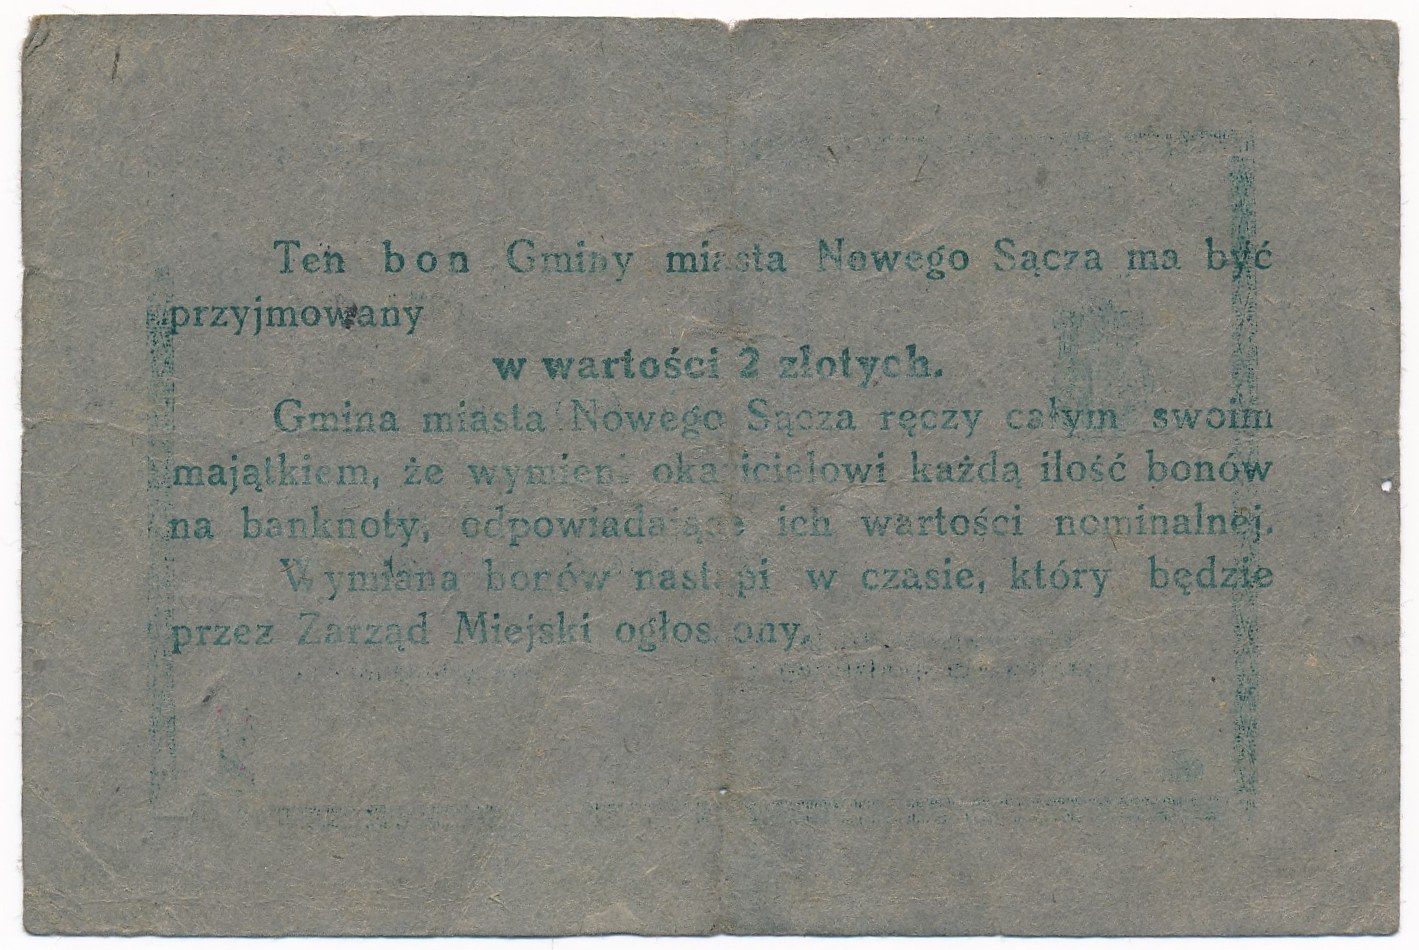 Ten bon Gminy miasta Nowego Sącza ma być
przyjmowany
w wartości 2 złotych.
Gmina miasta Nowego Sącza ręczy całym swoim
majątkiem, że wymieni okazicielowi każdą ilość bonów
na banknoty, odpowiadające ich wartości nominalnej.
Wymiana bonów nastąpi w czasie, który będzie
przez Zarząd Miejski ogłoszony.